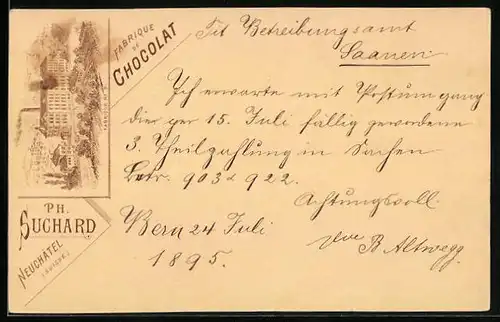 FABRIQUE
DE
CHOCOLAT
PH.
SUCHARD
NEUCHATEL
(SUISSE)
Tit Betreibungsamt
Saanen:
Ich erwarte mit Postumgang
die per 15. Juli fällig gewordene
3. Theilzahlung in Sachen
Betr. 903 & 922.
Achtungsvoll
Bern 24 Juli
1895.
B Altwegg.